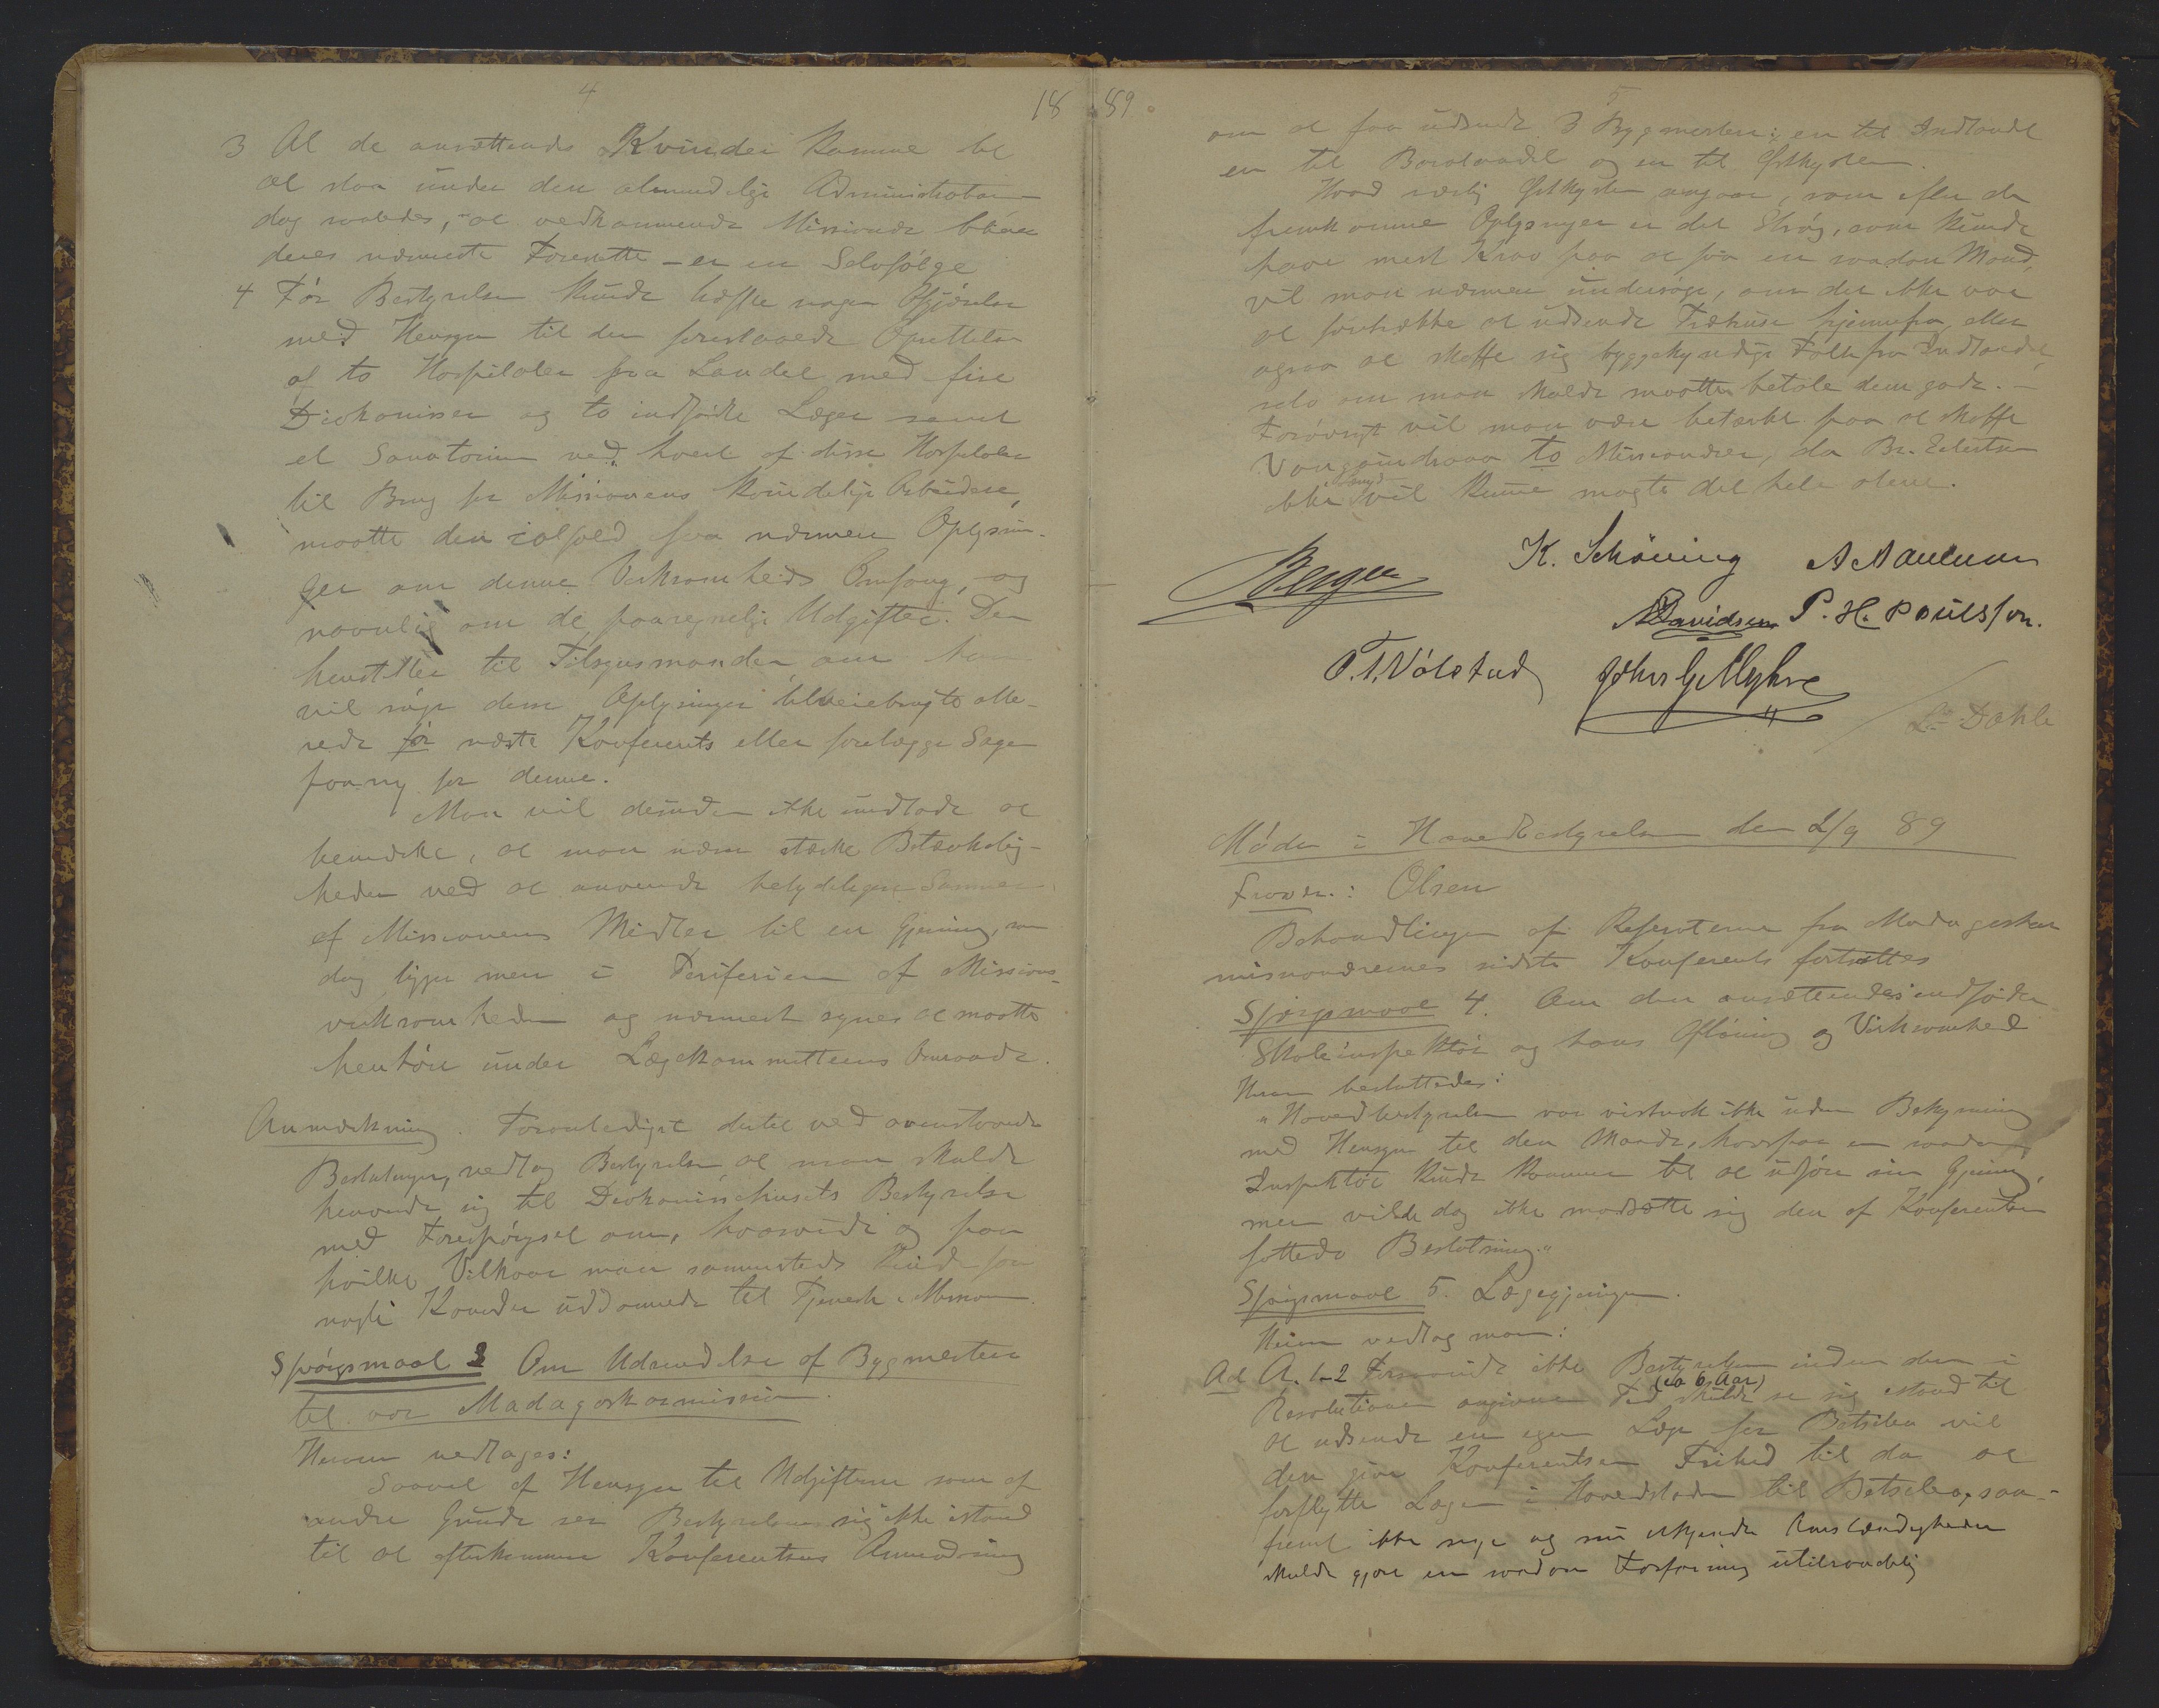 4
18
3 At de ansættende Kvinder komme til
at staa under den almindelige Administration
dog saaledes, at vedkommende Missionær bliver
deres nærmeste Foresatte – er en Selvfølge
4 Før Bestyrelsen kunde træffe nogen Afgjørelse
med Hensyn til den foreslaaede Oprettelse
af to Hospitaler paa Landet med fire
Diakonisser og to indfødte Læger samt
et Sanatorium ved hvert af disse Hospitaler
til Brug for Missionens kvindelige Arbeidere,
maatte den ialfald faa nærmere Oplysnin-
ger om denne Virksomheds Omfang, og
navnlig om de paaregnelige Udgifter. Den
henstiller til Tilsynsmanden om han
vil søge disse Oplysninger tilveiebragte alle-
rede før næste Konferents eller forelægge Sagen
paany for denne.
Man vil desuden ikke undlade at
bemærke, at man nærer stærke Betænkelig-
heder ved at anvende betydeligere Summer
af Missionens Midler til en Gjerning, som
dog ligger mere i Periferien af Missions-
virksomheden og nærmest synes at maatte
henhøre under Lægekommitteens Omraade.
Anmærkning. Foranlediget dertil ved ovenstaaende
Beslutninger, vedtog Bestyrelsen at man skulde
henvende sig til Diakonissehusets Bestyrelse
med Forespørgsel om, hvorvidt og paa
hvilke Vilkaar man sammesteds kunde faa
nogle Kvinder uddannede til Tjeneste i Missionen
Spørgsmaal 3 Om Udsendelse af Bygmestere
til vor Madagaskarmission.
Herom vedtoges:
Saavel af Hensyn til Udgifterne som af
andre Grunde ser Bestyrelsen sig ikke istand
til at efterkomme Konferentsens Anmodning
5
89
om at faa udsendt 3 Bygmestere: en til Indlandet
en til Baralandet og en til Østkysten.
Hvad særlig Østkysten angaar, som efter de
fremkomne Oplysninger er det Strøg, som kunde
have mest Krav paa at faa en saadan Mand,
vil man nærmere undersøge, om det ikke var
at foretrække at udsende Træhuse hjemmefra eller
ogsaa at skaffe sig byggekyndige Folk fra Indlandet,
selv om man skulde maatte betale dem godt. –
Forøvrigt vil man være betænkt paa at skaffe
Vangaindrano to Missionærer, da Br.
ikke vil kunne magte det hele alene.
Berger
K. Schöning
A Davidsen
P. H. Poulsson.
O. T. Nålstad
Johs G Myhre
L. Dahle
Møde i Hovedbestyrelsen den 2/9 89
Fravær.: Olsen
Behandlingen af Referaterne fra Madagaskar
missionærernes sidste Konferents fortsattes
Spørgsmaal 4. Om den ansættendes indfødte
Skoleinspektør og hans Aflønning og Virksomhed
Herom besluttedes:
"Hovedbestyrelsen var vistnok ikke uden Bekymring
med Hensyn til den Maade, hvorpaa en saadan
Inspektør kunde komme til at udføre sin Gjerning,
men vilde dog ikke modsætte sig den af Konferentsen
fattede Beslutning."
Spørgsmaal 5. Lægegjerningen.
Herom vedtog man:
Ad A. 1-2 Forsaavidt ikke Bestyrelsen inden den i
Resolutionen angivne Tid (ca 6 Aar) skulde se sig istand til
at udsende en egen Læge for Betsileo vil
den give Konferentsen Frihed til da at
forflytte Lægen i Hovedstaden til Betsileo, saa-
fremt ikke nye og nu ukjendte Omstændigheder
skulde gjøre en saadan Forføining utilraadelig